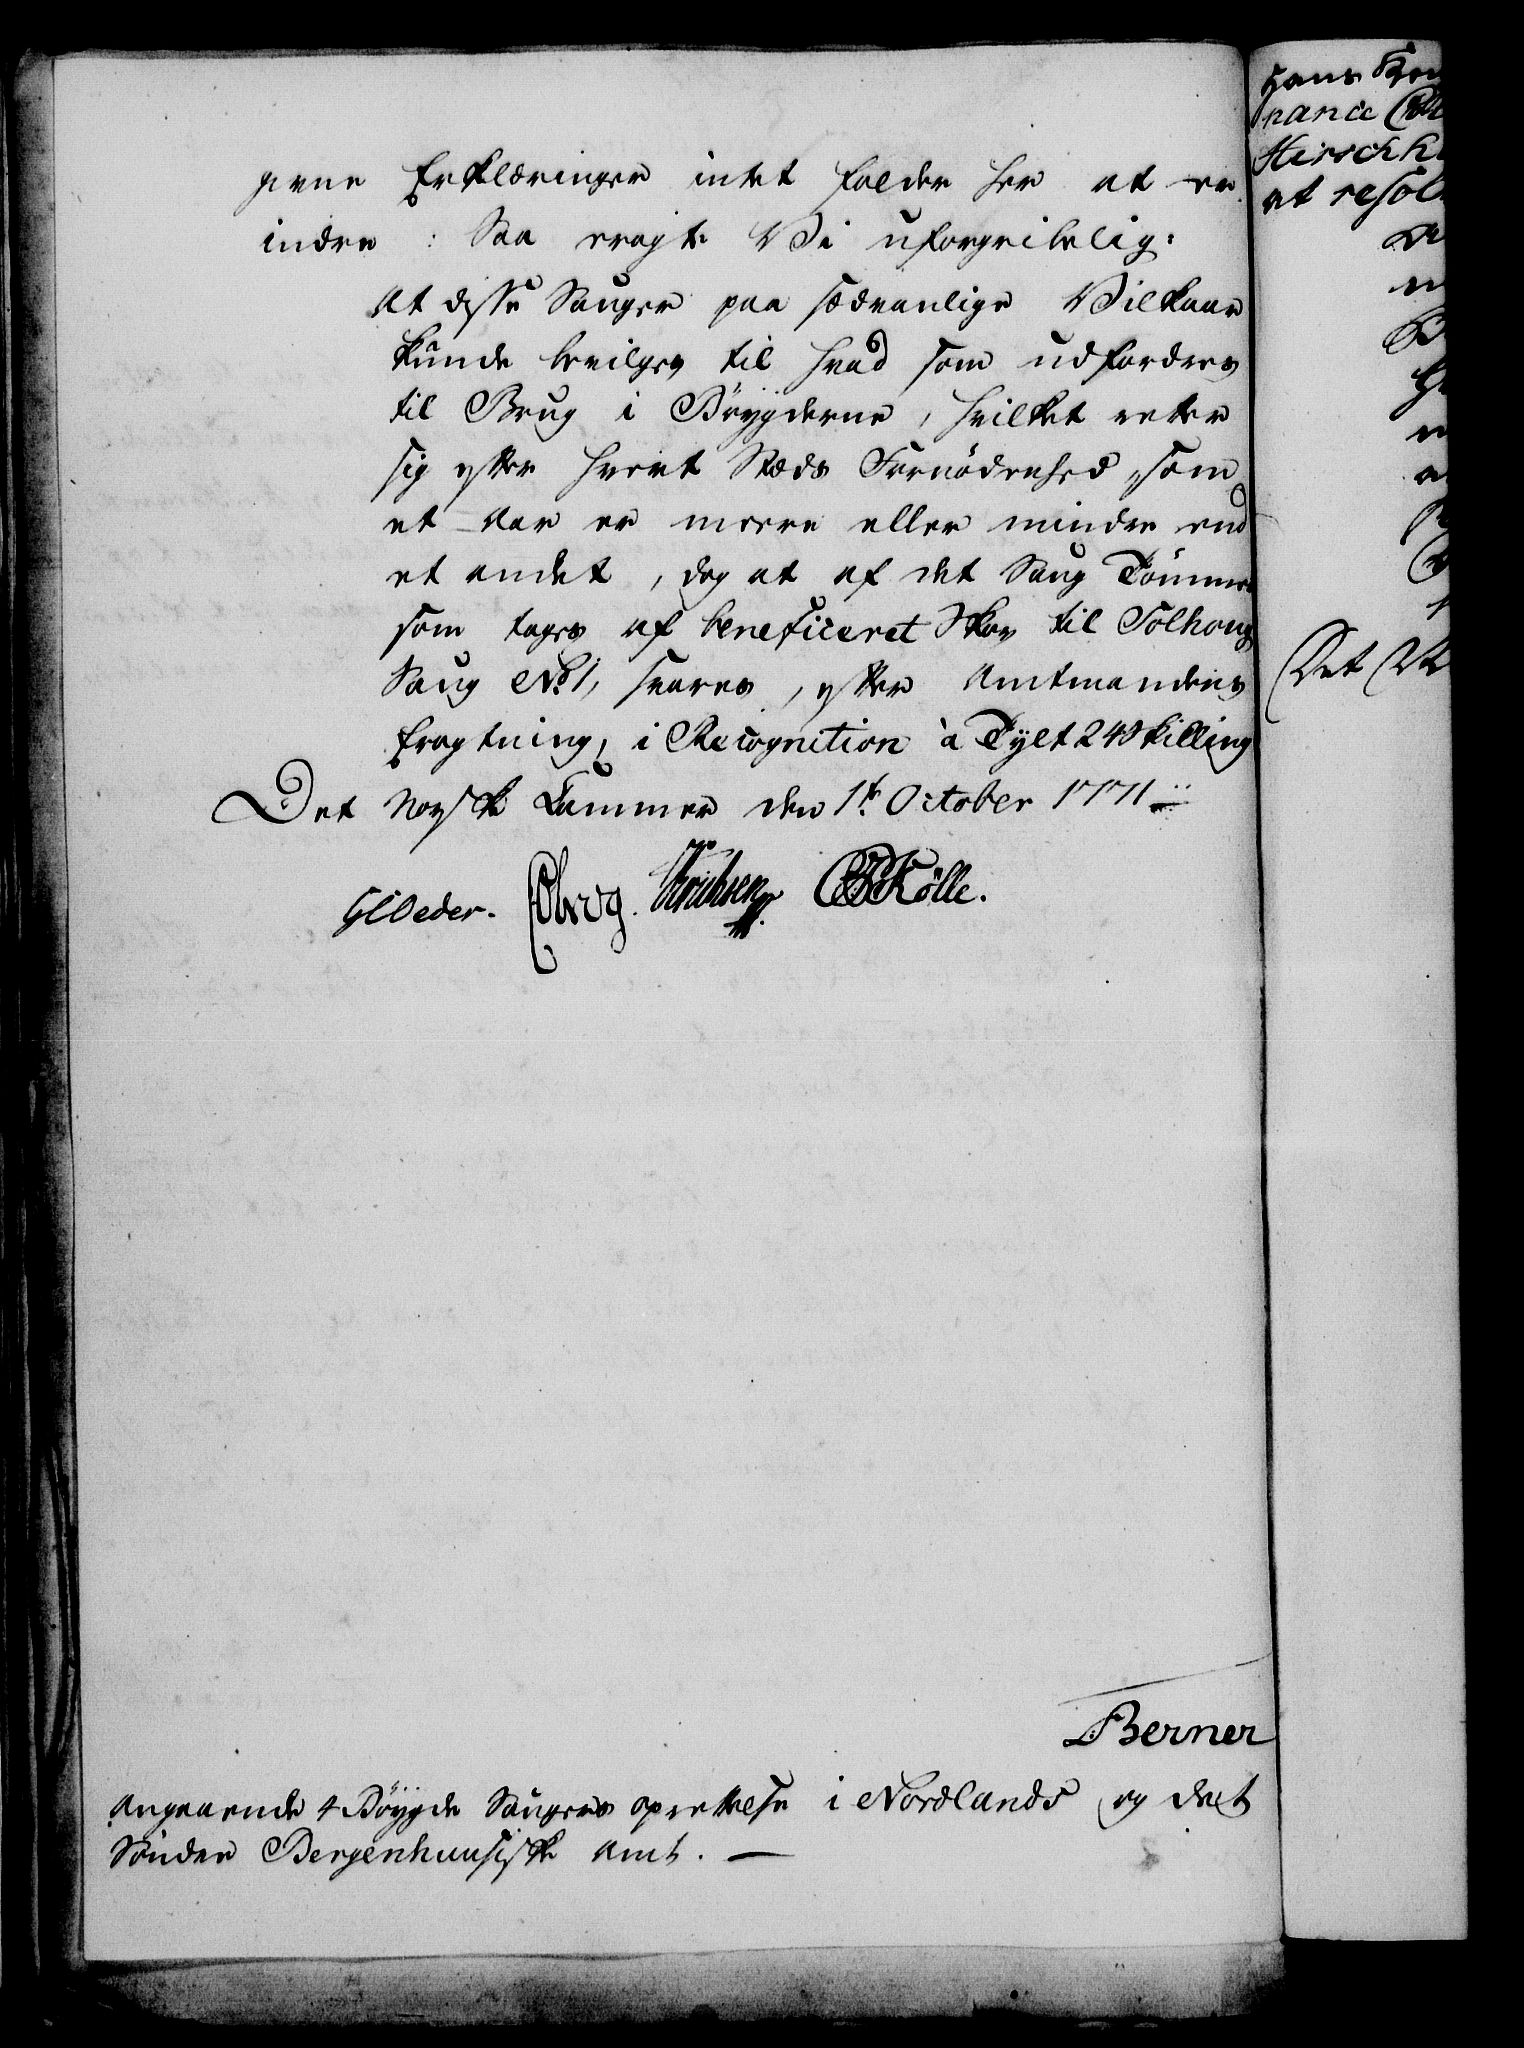 givne Erklæringer intet falder her at er
indre : Saa eragte Vi uforgribelig:
At disse Sauger paa sædvanlige Vilkaar
kunde bevilges til hvad som udfordres
til Brug i Böygderne, hvilket retter
sig efter hvert Stæds Fornödenhed, som
et Aar er meere eller mindre end
et andet, dog at af det Saug Tömmer
som tages af beneficeret Skov til Solhoug
Saug No 1, svares, efter Amtmandens
Eragtning, i Recognition à Tylt 24 Skilling
Det Norske Kammer den 1te October 1771
GCOeder. Oberg. CBKölle.
Berner
Angaaende 4 Böygde Saugers oprettelse i Nordlands og det
Sönder Bergenhuusiske Amt. —
Hans
nance
Hirschh
at resol
Det